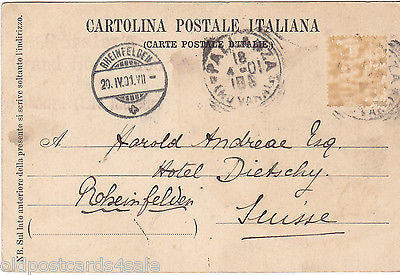 CARTOLINA POSTALE ITALIANA
(CARTE POSTALE D'ITALIE)
NB. Sul lato anteriore della presente si scrive soltanto l'indirizzo.
RHEINFELDEN
20.IV.01.VII-
PALLANZA
18
4-01
A Harold Andreae Esq.
Hotel Dietschy
Rheinfelden
Suisse
© oldpostcards4sale